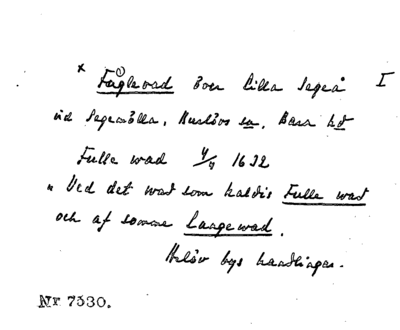 × Fåglevad över Lilla Segeå I
vid Segemölla, Kurlövs sn, Bara hd
Fulle wad 4/4 1632
" Ved det wad som kaldis Fulle wad
och af somme Langewad.
bys handlingar.
Nr 7330.